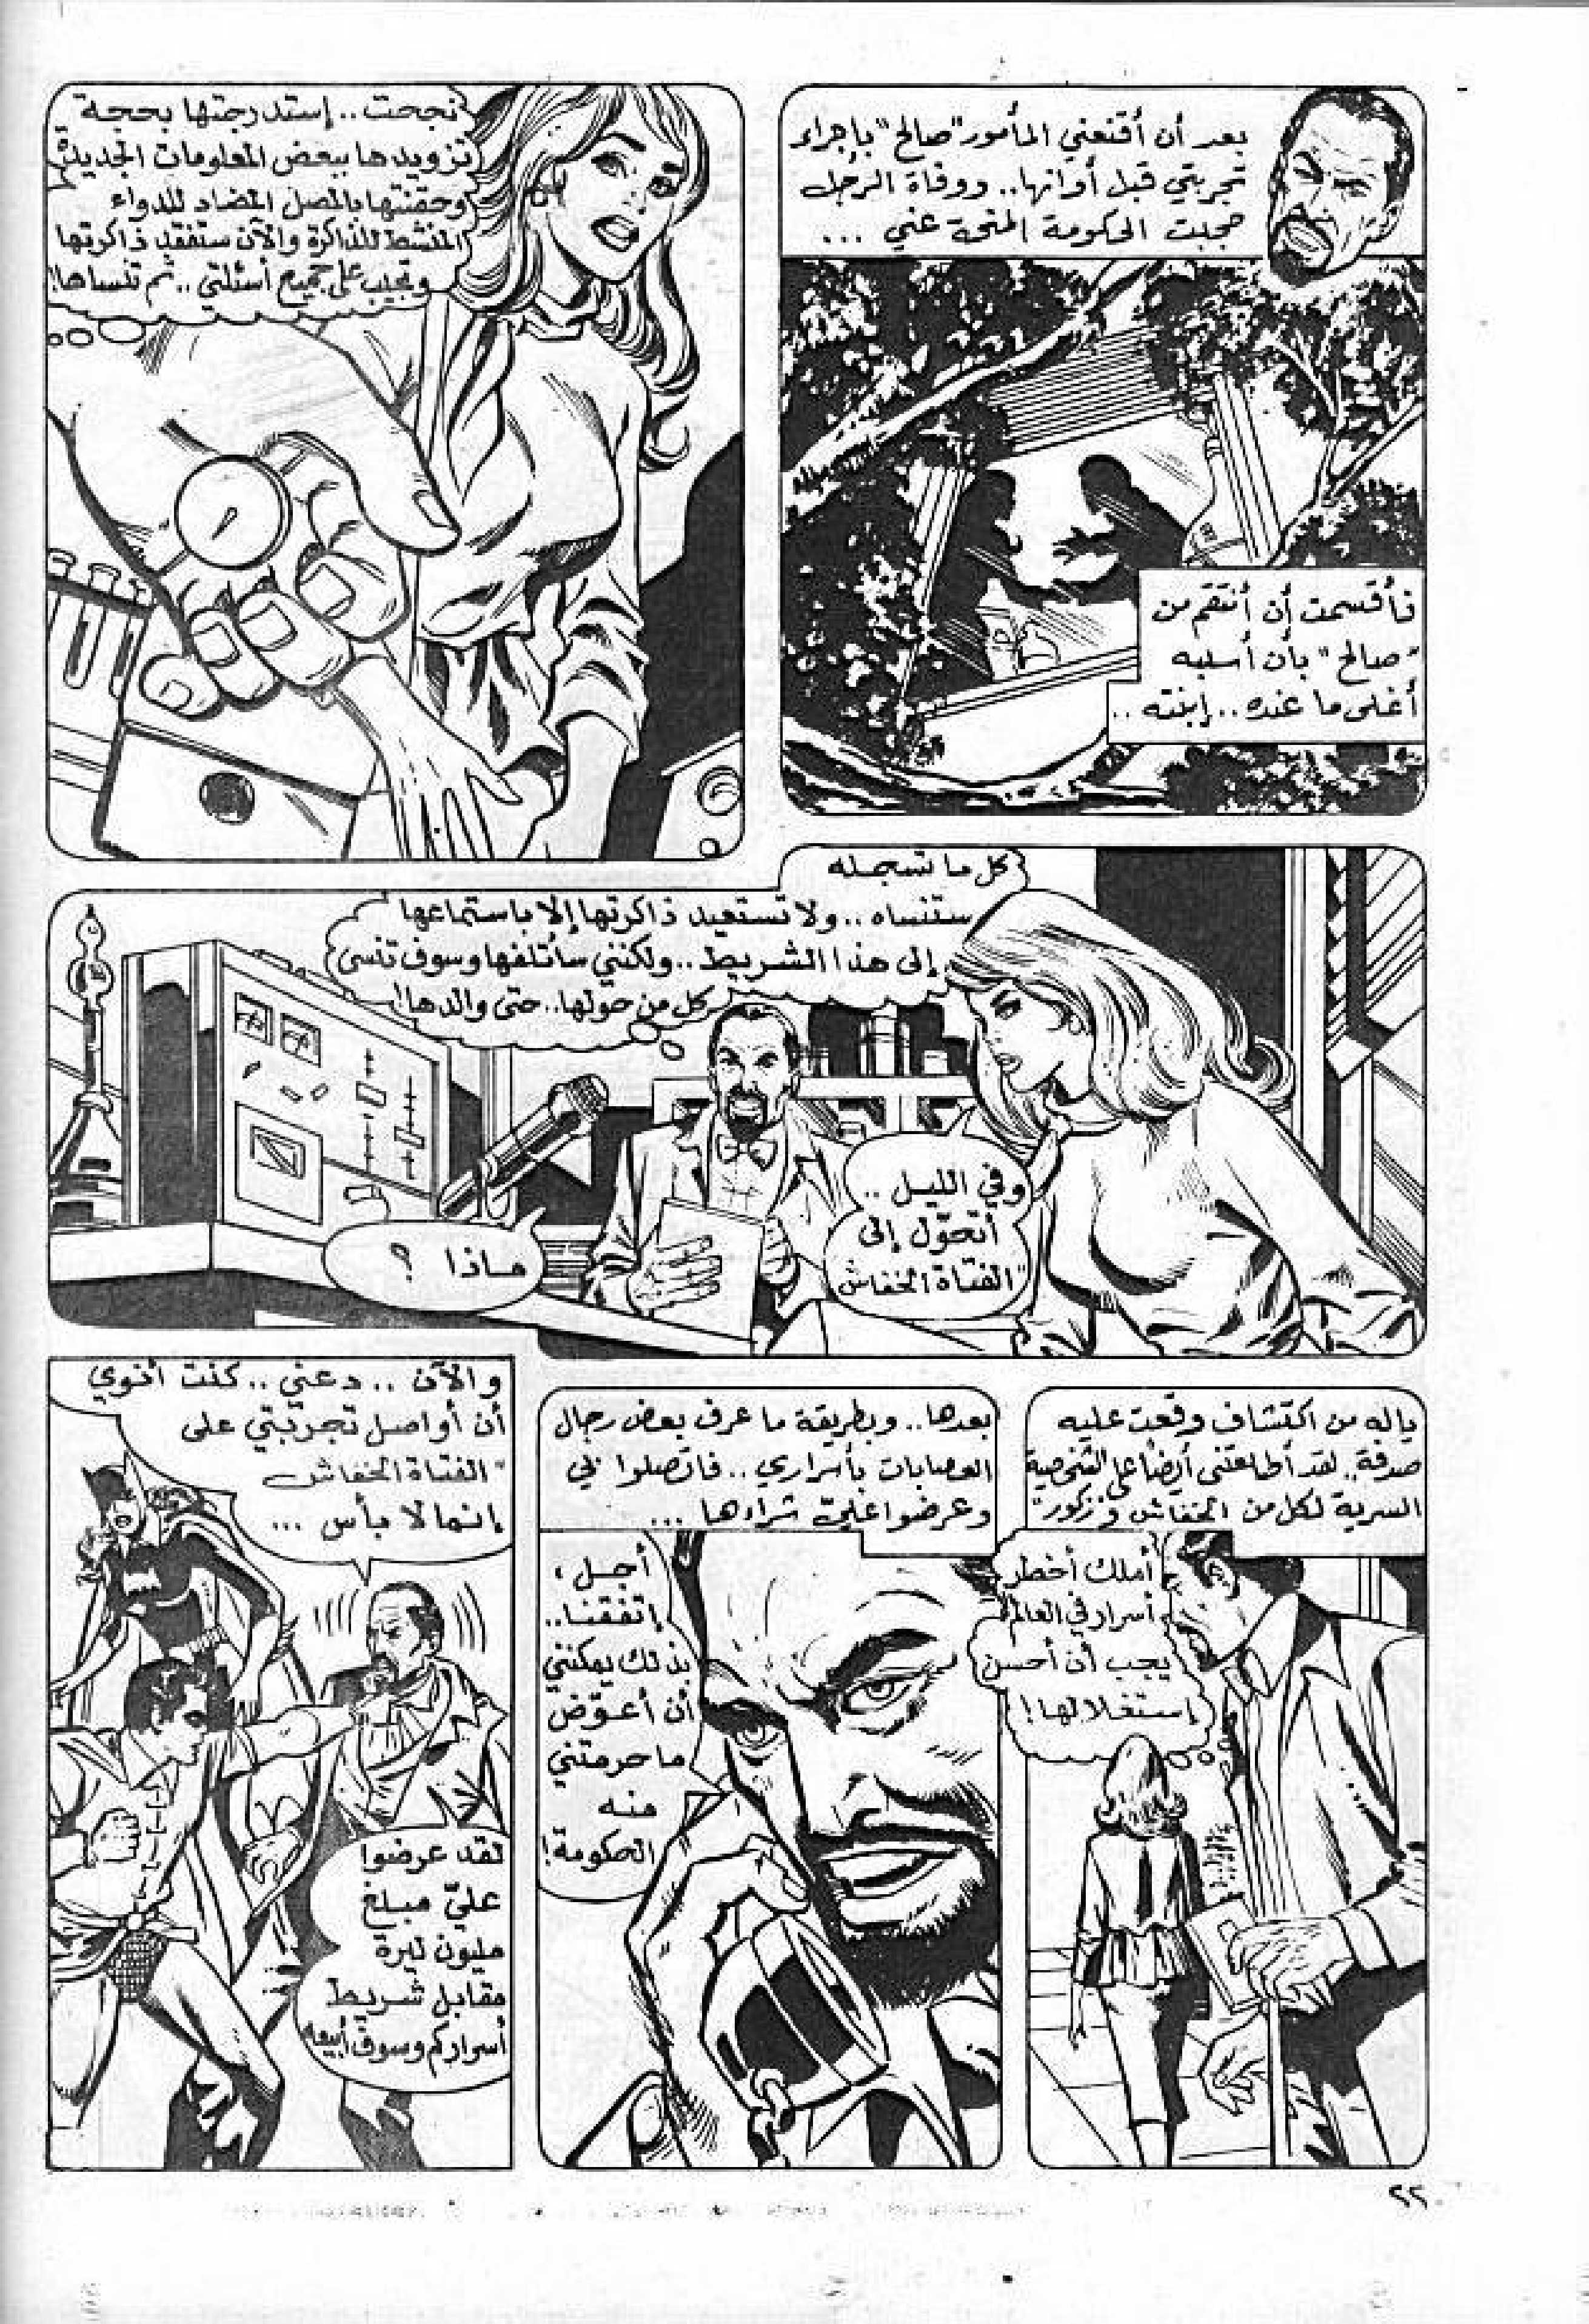 بعد أن أقنعني المأمور "صالح" بإجراء
تجربتي قبل أوانها.. ووفاة الرجل
حجبت الحكومة المنحة عني ...
فأقسمت أن أنتقم من
"صالح" بأن أسلبه
أغلى ما عنده.. إبنته ..
نجحت.. إستدرجتها بحجة
تزويدها ببعض المعلومات الجديدة
وحقنتها بالمصل المضاد للدواء
المنشط للذاكرة والآن ستفقد ذاكرتها
وتجيب على جميع أسئلتي.. ثم تنساها!
كل ما تسجله
ستنساه.. ولا تستعيد ذاكرتها إلا باستماعها
إلى هذا الشريط.. ولكنني سأتلفها وسوف تنسى
كل من حولها.. حتى والدها!
وفي الليل ..
أتحوّل إلى
"الفتاة الخفاش"
مـاذا ؟
ياله من اكتشاف وقعت عليه
صدفة.. لقد أطلعتني أيضاً على الشخصية
السرية لكل من الخفاش و"زكور"
أملك أخطر
أسرار في العالم
يجب أن أحسن
إستغلالها!
بعدها.. وبطريقة ما عرف بعض رجال
العصابات بأسراري.. فاتصلوا بي
وعرضوا عليّ شراءها ...
أجـل ،
إتفقنا..
بذلك يمكنني
أن أعـوّض
ما حرمتني
منه
الحكومة!
والآن .. دعني .. كنت أنوي
أن أواصل تجربتي على
"الفتاة الخفاش"
إنما لا بأس ...
لقد عرضوا
عليّ مبلغ
مليون ليرة
مقابل شريط
أسراركم وسوف أبيعه
٢٢